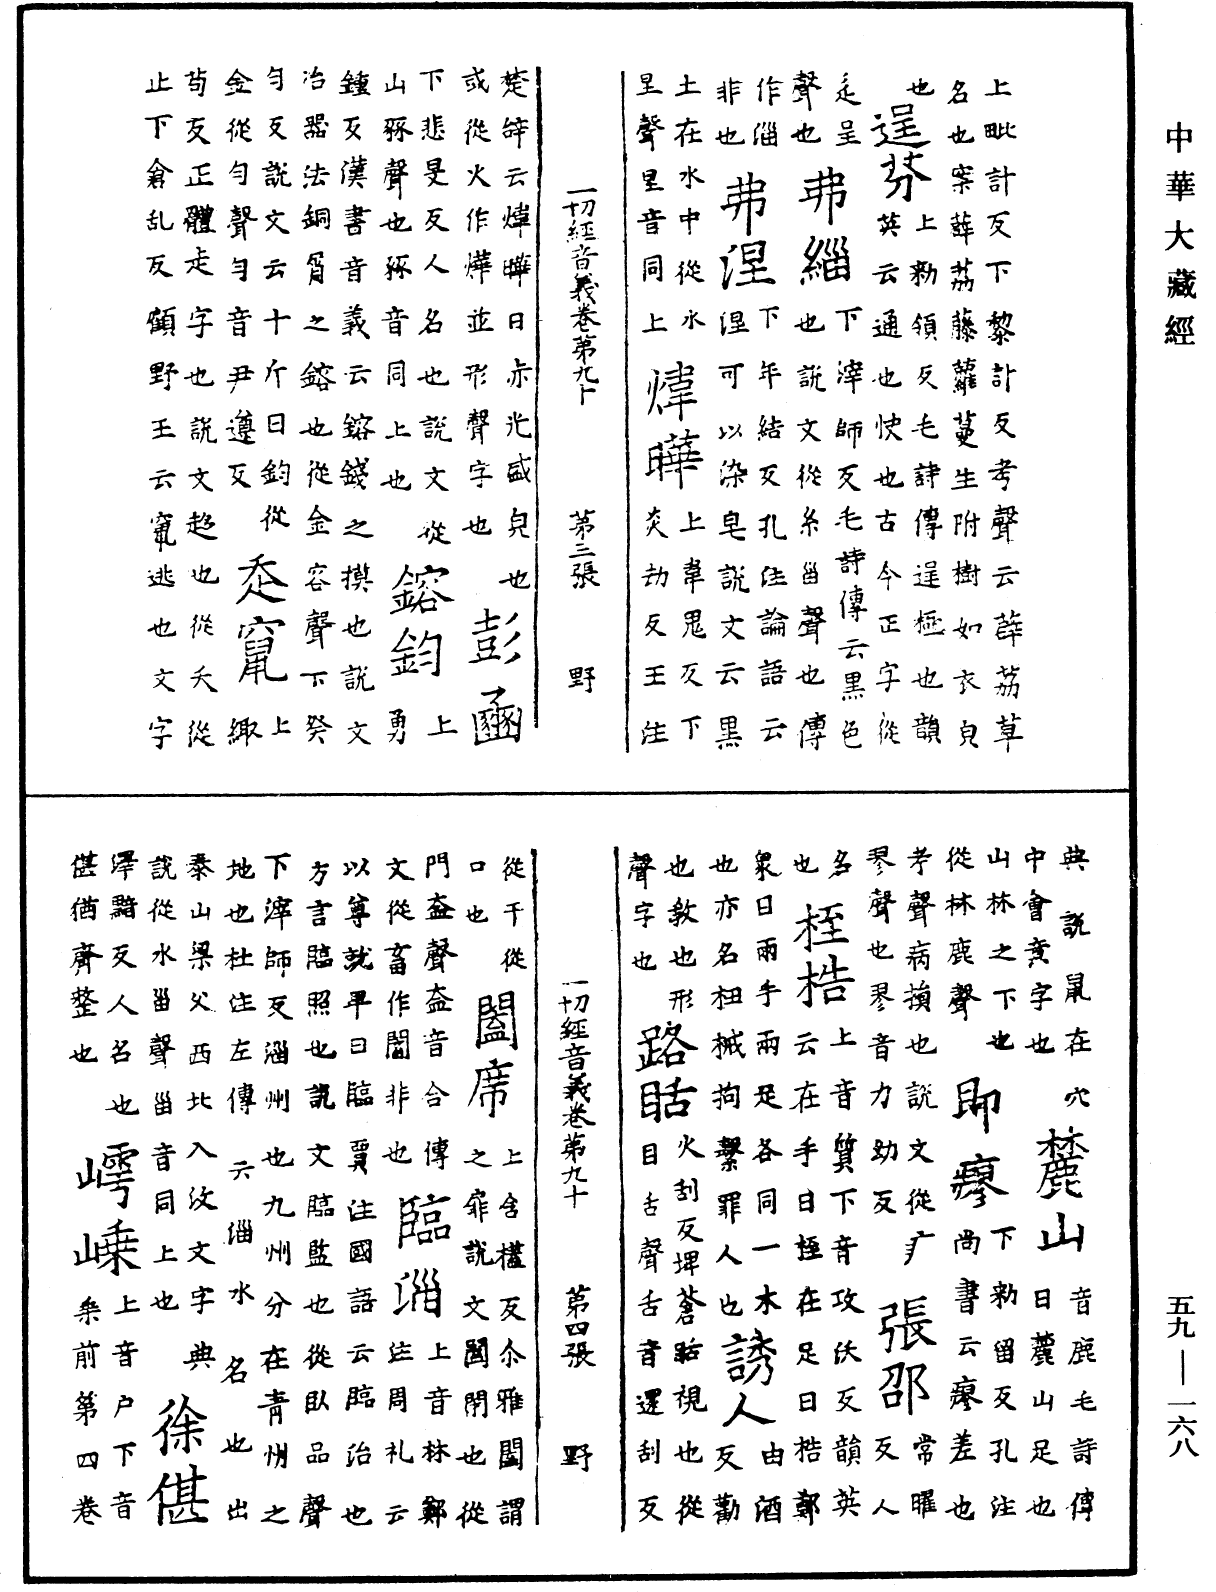 中華大藏經
上毗計反下黎計反考聲云薜荔草
名也案薜荔藤蘿蔓生附樹如衣皃
也　逞芬　上勑領反毛詩傳逞極也韻
英云通也快也古今正字從
辵呈聲也　弗緇　下滓師反毛詩傳云黑色
也說文從糸甾聲也傳
作淄非也　弗涅　下年結反孔注論語云
涅可以染皂說文云黑
土在水中從水
𡈼聲𡈼音同上　煒曄　上韋鬼反下
炎劫反王注
一切經音義卷第九十　第三張　野
楚辝云煒曄日亦光盛皃也
或從火作燁並形聲字也　彭豳　上
下悲旻反人名也說文從
山豩聲也豩音同上也　鎔鈞　勇
鍾反漢書音義云鎔錢之摸也說文
冶器法銅質之鎔也從金容聲下癸
勻反說文云十斤曰鈞從
金從勻聲勻音尹遵反　赱竄　上
緅
苟反正體走字也說文趍也從夭從
止下倉乱反顧野王云竄逃也文字
典說鼠在穴
中會意字也　麓山　音鹿毛詩傳
曰麓山足也
山林之下也
從林鹿聲　即瘳　下勑留反孔注
尚書云瘳差也
考聲病損也說文從疒
翏聲也翏音力幼反　張邵　常曜
反人
名也　桎梏　上音質下音攻沃反韻英
云在手曰桎在足曰梏鄭
衆曰兩手兩足各同一木
也亦名杻械拘繫罪人也　誘人　由酒
反勸
也敎也形
聲字也　䂬䀨　火刮反埤蒼䀨視也從
目舌聲舌音還刮反
一切經音義卷第九十　第四張　野
從干從
口也　闔席　上含榼反尒雅闔謂
之扉說文闔閇也從
門盍聲盍音合傳
文從畜作闔非也　臨淄　上音林鄭
注周礼云
以尊就卑曰臨賈注國語云臨治也
方言臨照也說文臨監也從臥品聲
下滓師反淄州也九州分在靑州之
地也杜注左傳云淄水名也出
泰山梁父西北入汶文字典
說從水甾聲甾音同上也　徐偡
澤黯反人名也
偡猶齊整也　㟧嵊　上音户下音
椉前第四卷
五九—一六八